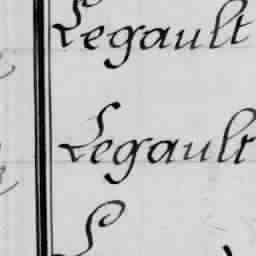 Legault
Legault